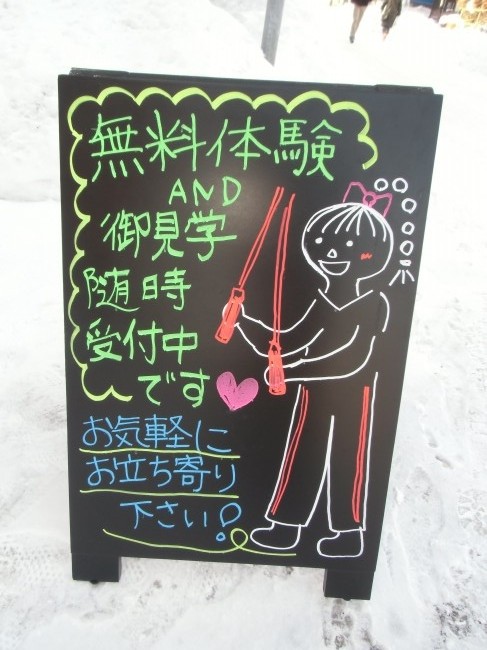 無料体験
AND
御見学
随時
受付中
です
お気軽に
お立ち寄り
下さい!